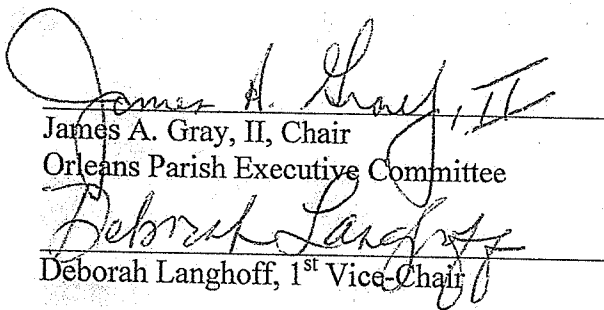 James A. Gray, II
James A. Gray, II, Chair
Orleans Parish Executive Committee
Deborah Langhoff
Deborah Langhoff, 1st Vice-Chair